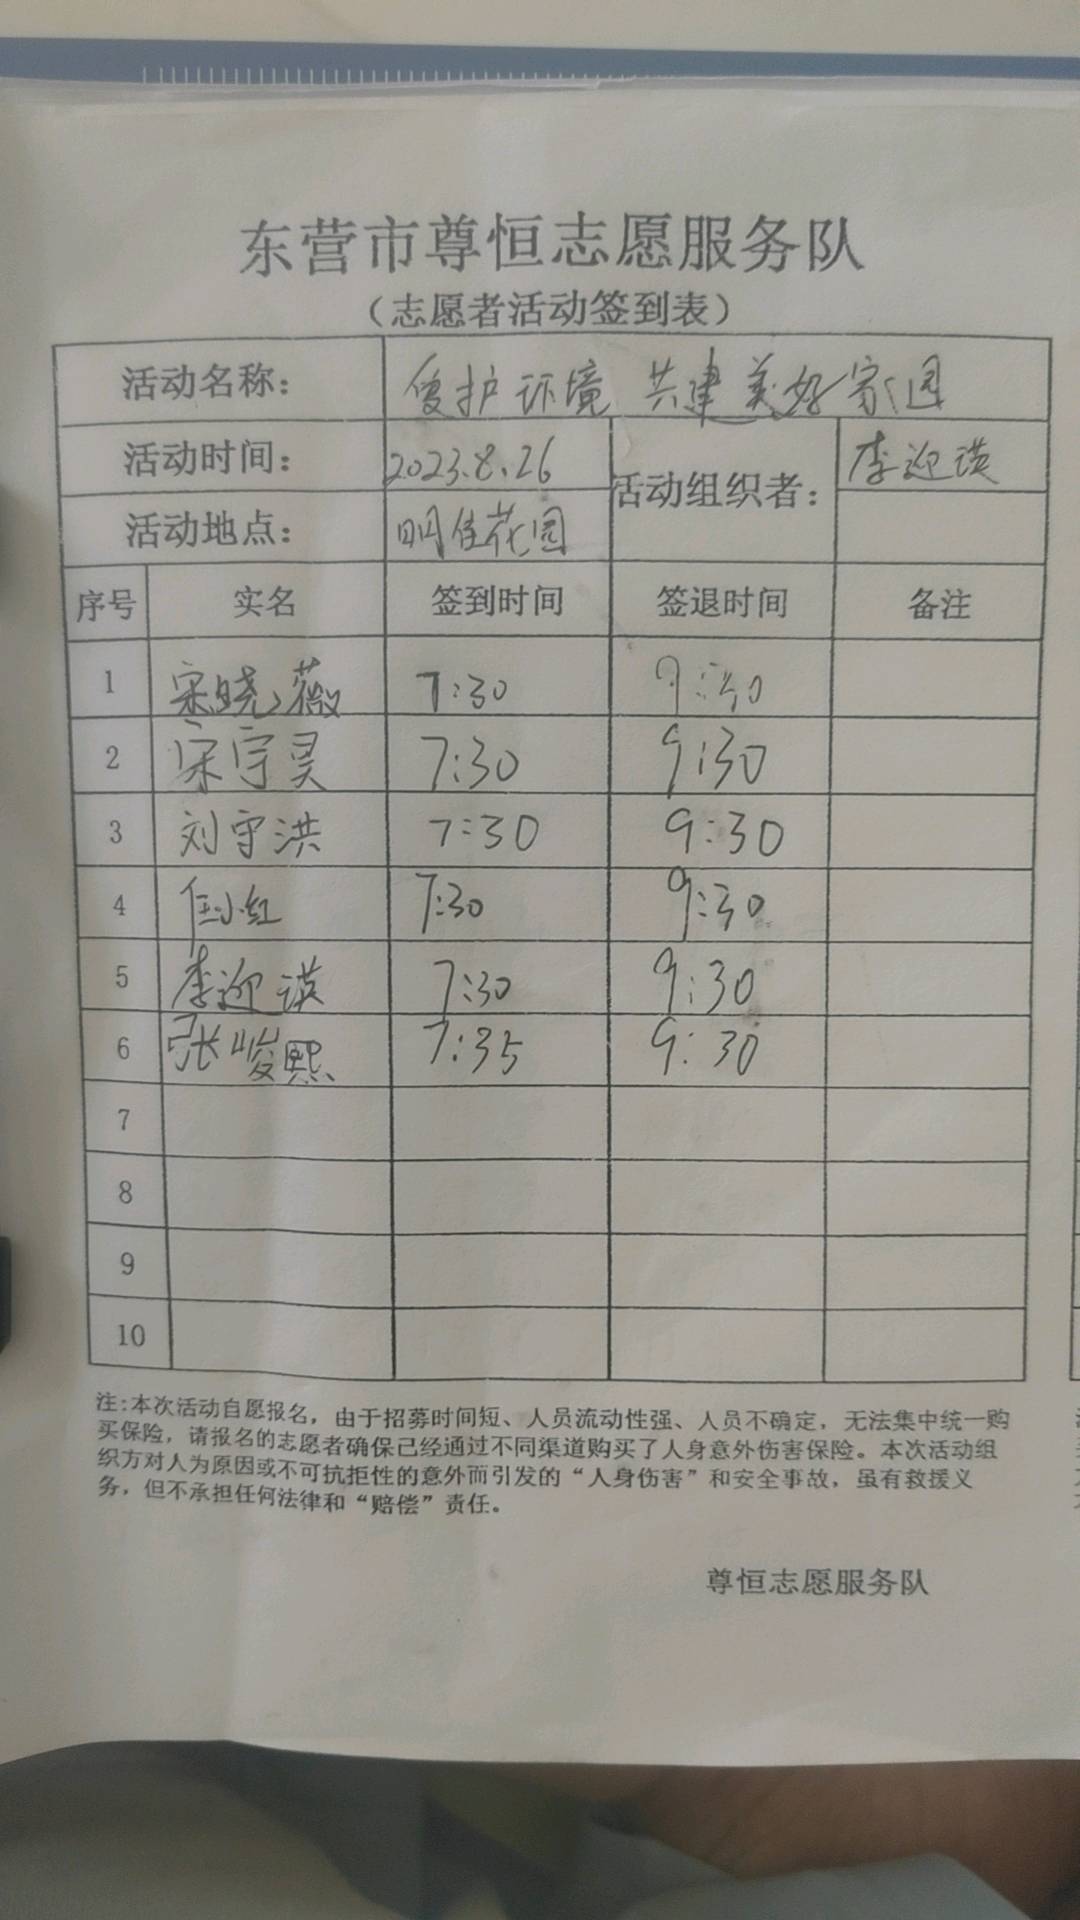 东营市尊恒志愿服务队
（志愿者活动签到表）
活动名称： 爱护环境 共建美好家园
活动时间： 2023.8.26 活动组织者： 李迎瑛
活动地点： 明佳花园
序号 实名 签到时间 签退时间 备注
1 宋晓薇 7:30 9:30
2 宋宇昊 7:30 9:30
3 刘守洪 7:30 9:30
4 任小红 7:30 9:30
5 李迎瑛 7:30 9:30
6 张峻熙 7:35 9:30
7
8
9
10
注：本次活动自愿报名，由于招募时间短、人员流动性强、人员不确定，无法集中统一购
买保险，请报名的志愿者确保已经通过不同渠道购买了人身意外伤害保险。本次活动组
织方对人为原因或不可抗拒性的意外而引发的“人身伤害”和安全事故，虽有救援义
务，但不承担任何法律和“赔偿”责任。
尊恒志愿服务队